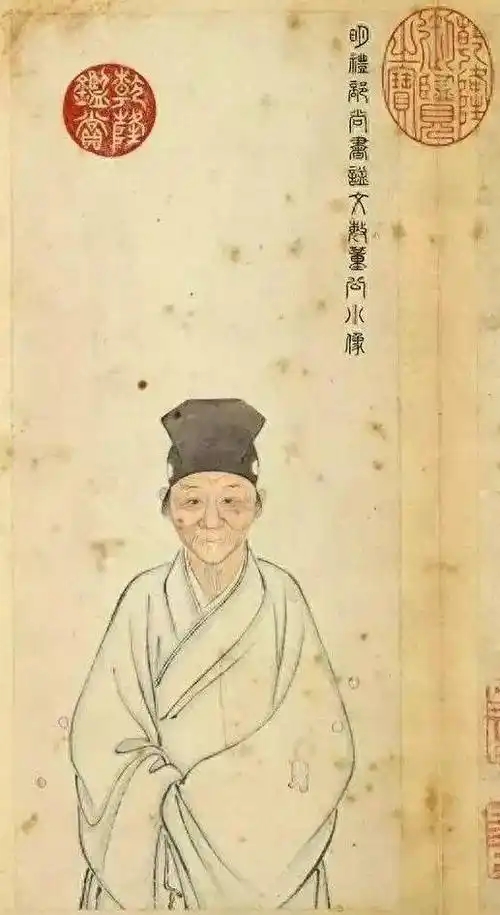 乾隆
御覽
之寶
明禮部尚書諡文敏董公小像
乾隆
鑑賞